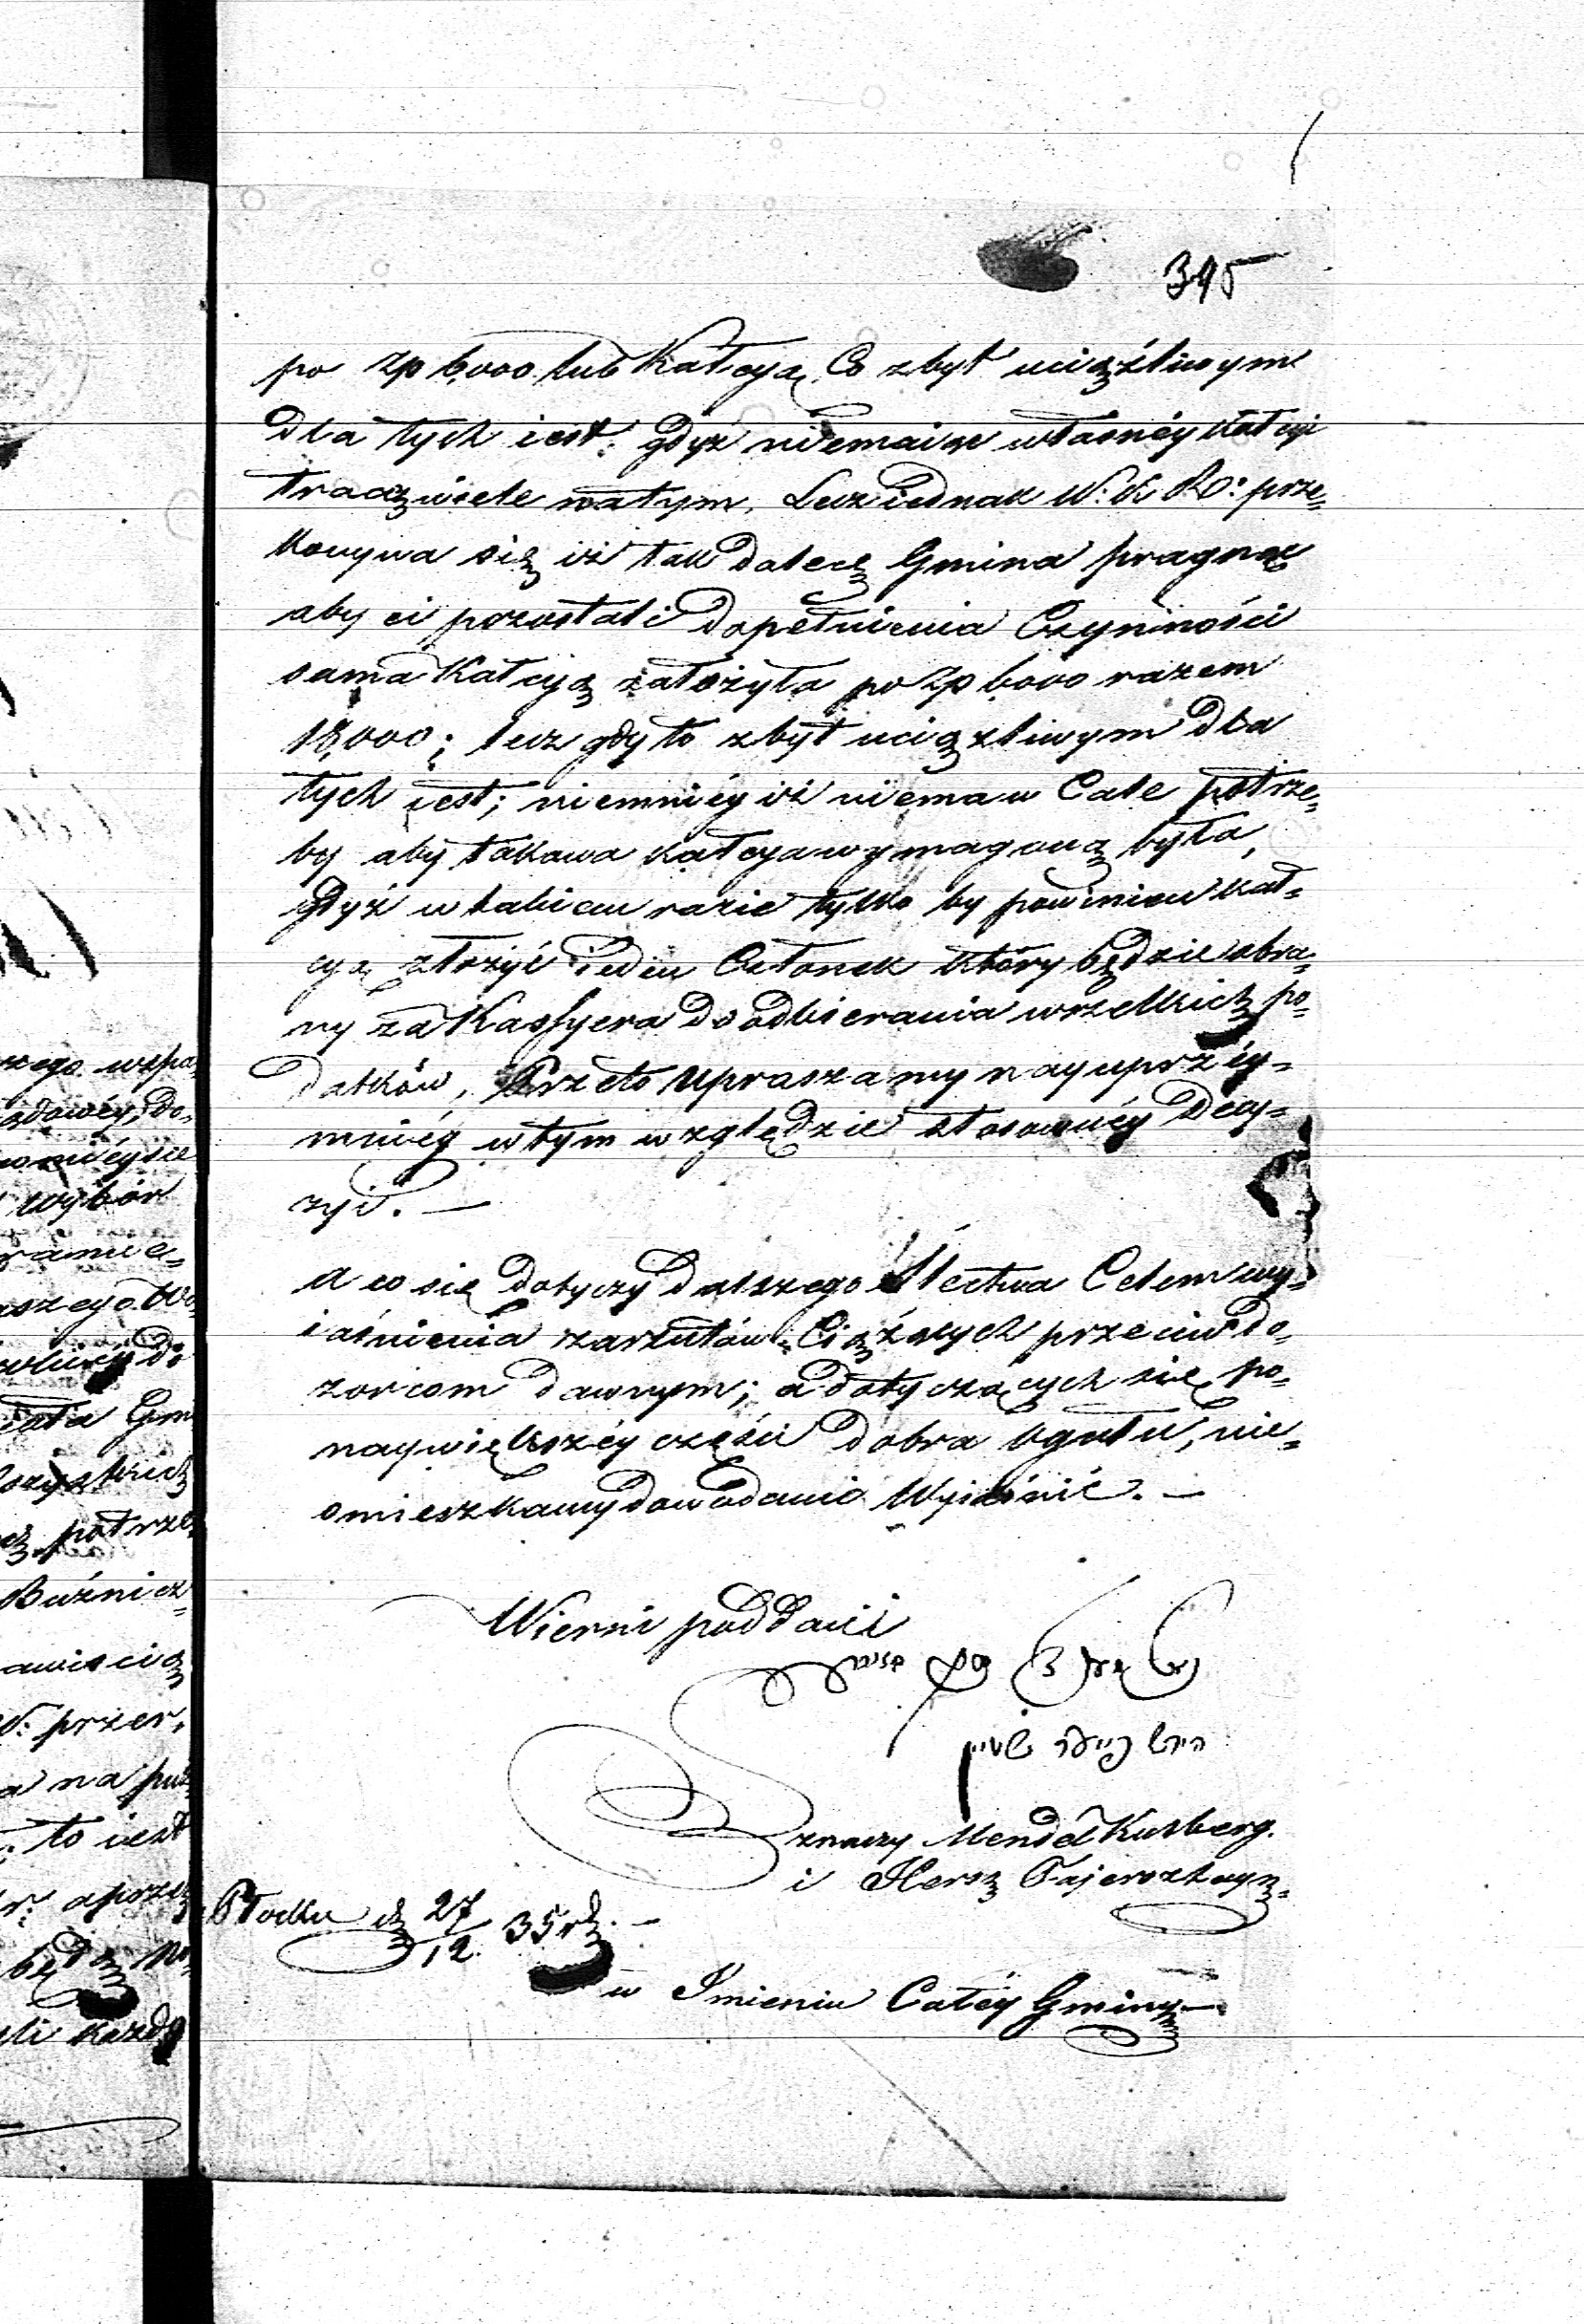 395
po zp 6,000 lub Kałcyą, Co zbyt uciążliwym
dla tych iest: gdyż niemaiąc własnéy Kałcyi
tracą wiele na tym. Lecz iednak W: K: R: prze-
konywa się iż tak dalece Gmina pragnąc
aby ci pozostali dopełnienia Czynności
sama Kałcyą założyła po zp 6000 razem
18,000; lecz gdy to zbyt uciążliwym dla
tych iest; niemniéy iż niema w Cale potrze-
by aby takowa kałcya wymaganą była,
gdyż w takiem razie tylko by powinien kał-
cyą złożyć ieden Członek który będzie obra-
ny za Kassyera do odbierania wszelkich po-
datków, Przeto upraszamy nayuprzéy-
mniéy w tym względzie stosownéy Decy-
zyi. —
a co się dotyczy dalszego Śledztwa Celem wy-
iaśnienia zarzutów Ciążących przeciw do-
zorcom dawnym; a dotyczących się po-
naywiększéy części dobra ogułu, nie-
omieszkamy dowodami Wyiaśnić. —
Wierni poddani
הירש פייער שטיין
znaczy Mendel Kusberg.
i Hersz Fajersztayn
Płocku d 27/12 35 r. —
w Imieniu Całéy Gminy —
zego wspo-
ądowéy, do-
wybór
potrze-
Buźnicz-
: przer,
a na
: to iest
będą
każdy